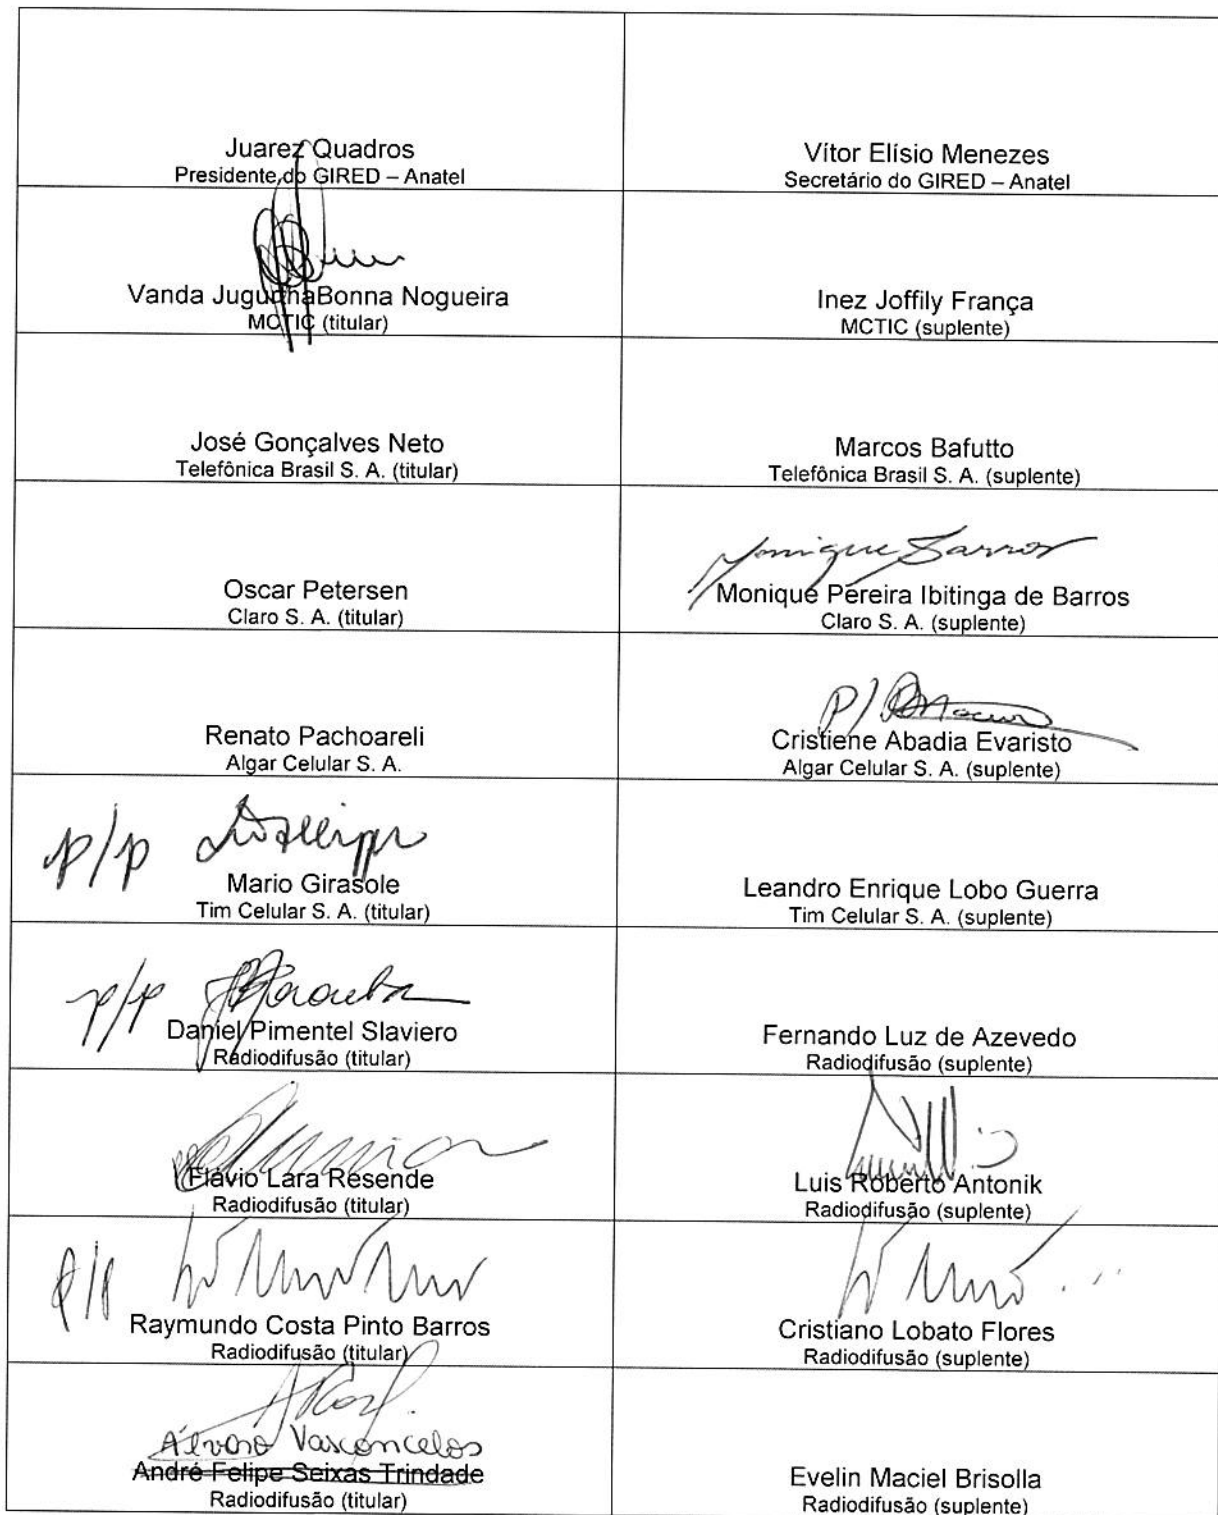 Juarez Quadros
Presidente do GIRED – Anatel
Vítor Elísio Menezes
Secretário do GIRED – Anatel
Vanda JugurthaBonna Nogueira
MCTIC (titular)
Inez Joffily França
MCTIC (suplente)
José Gonçalves Neto
Telefônica Brasil S. A. (titular)
Marcos Bafutto
Telefônica Brasil S. A. (suplente)
Oscar Petersen
Claro S. A. (titular)
Monique Barros
Monique Pereira Ibitinga de Barros
Claro S. A. (suplente)
Renato Pachoareli
Algar Celular S. A.
p/
Cristiene Abadia Evaristo
Algar Celular S. A. (suplente)
p/p
Mario Girasole
Tim Celular S. A. (titular)
Leandro Enrique Lobo Guerra
Tim Celular S. A. (suplente)
p/p
Daniel Pimentel Slaviero
Radiodifusão (titular)
Fernando Luz de Azevedo
Radiodifusão (suplente)
Flávio Lara Resende
Radiodifusão (titular)
Luis Roberto Antonik
Radiodifusão (suplente)
p/p
Raymundo Costa Pinto Barros
Radiodifusão (titular)
Cristiano Lobato Flores
Radiodifusão (suplente)
Álvaro Vasconcelos
André Felipe Seixas Trindade
Radiodifusão (titular)
Evelin Maciel Brisolla
Radiodifusão (suplente)